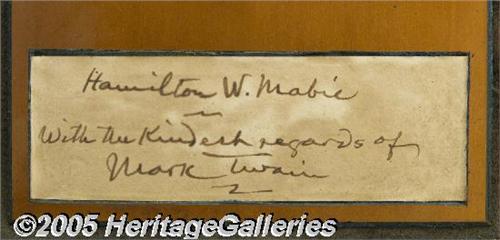 Hamilton W. Mabie
With the Kindest regards of
Mark Twain
©2005 HeritageGalleries